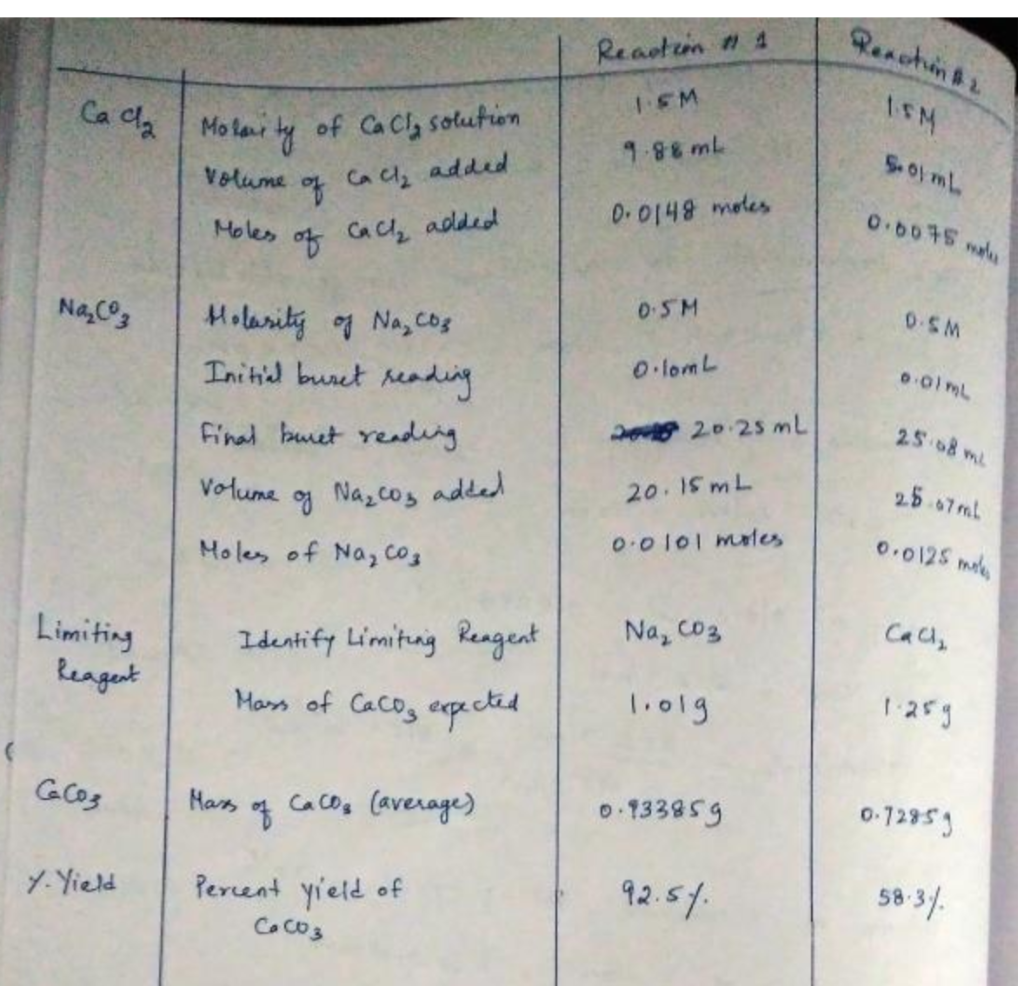 Reaction # 1 Reaction # 2
CaCl2 Molarity of CaCl2 solution 1.5M 1.5M
Volume of CaCl2 added 9.88 mL 5.01 mL
Moles of CaCl2 added 0.0148 moles 0.0075 moles
Na2CO3 Molarity of Na2CO3 0.5M 0.5M
Initial buret reading 0.10mL 0.01mL
Final buret reading 20.25 mL 25.08 mL
Volume of Na2CO3 added 20.15 mL 25.07mL
Moles of Na2CO3 0.0101 moles 0.0125 moles
Limiting Identify Limiting Reagent Na2CO3 CaCl2
Reagent
Mass of CaCO3 expected 1.01g 1.25g
CaCO3 Mass of CaCO3 (average) 0.93385g 0.7285g
%.Yield Percent yield of 92.5%. 58.3%.
CaCO3